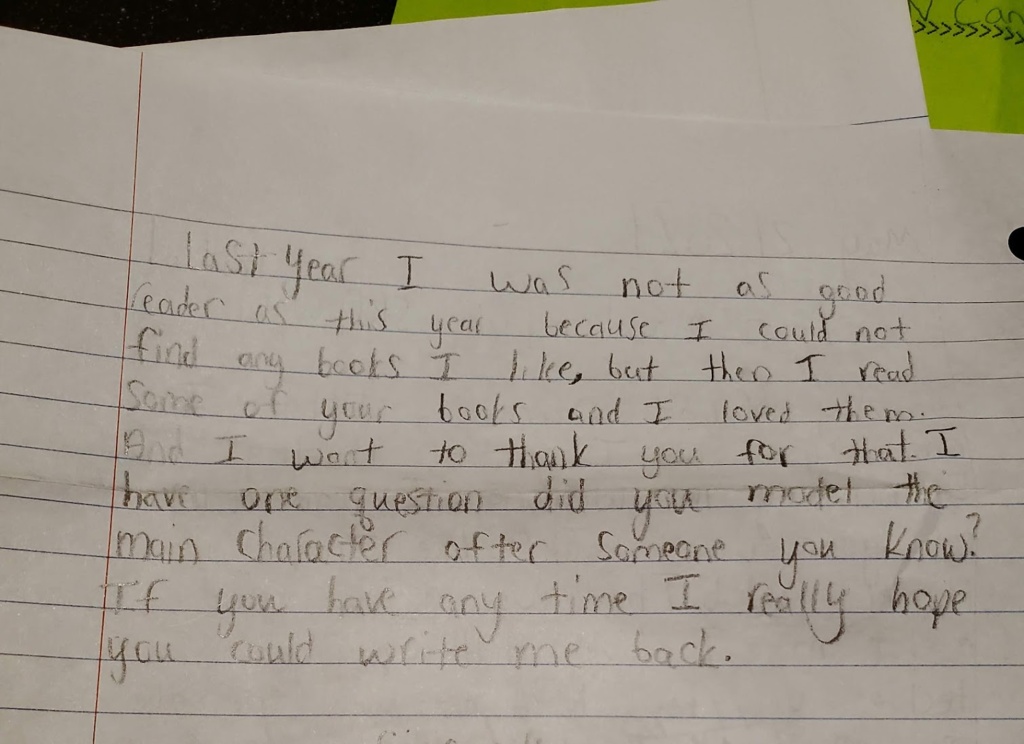 Can
>>>>>>>>>
Last year I was not as good
reader as this year because I could not
find any books I like, but then I read
Some of your books and I loved them.
And I want to thank you for that. I
have one question did you model the
main Character after Someone you know?
If you have any time I really hope
you could write me back.